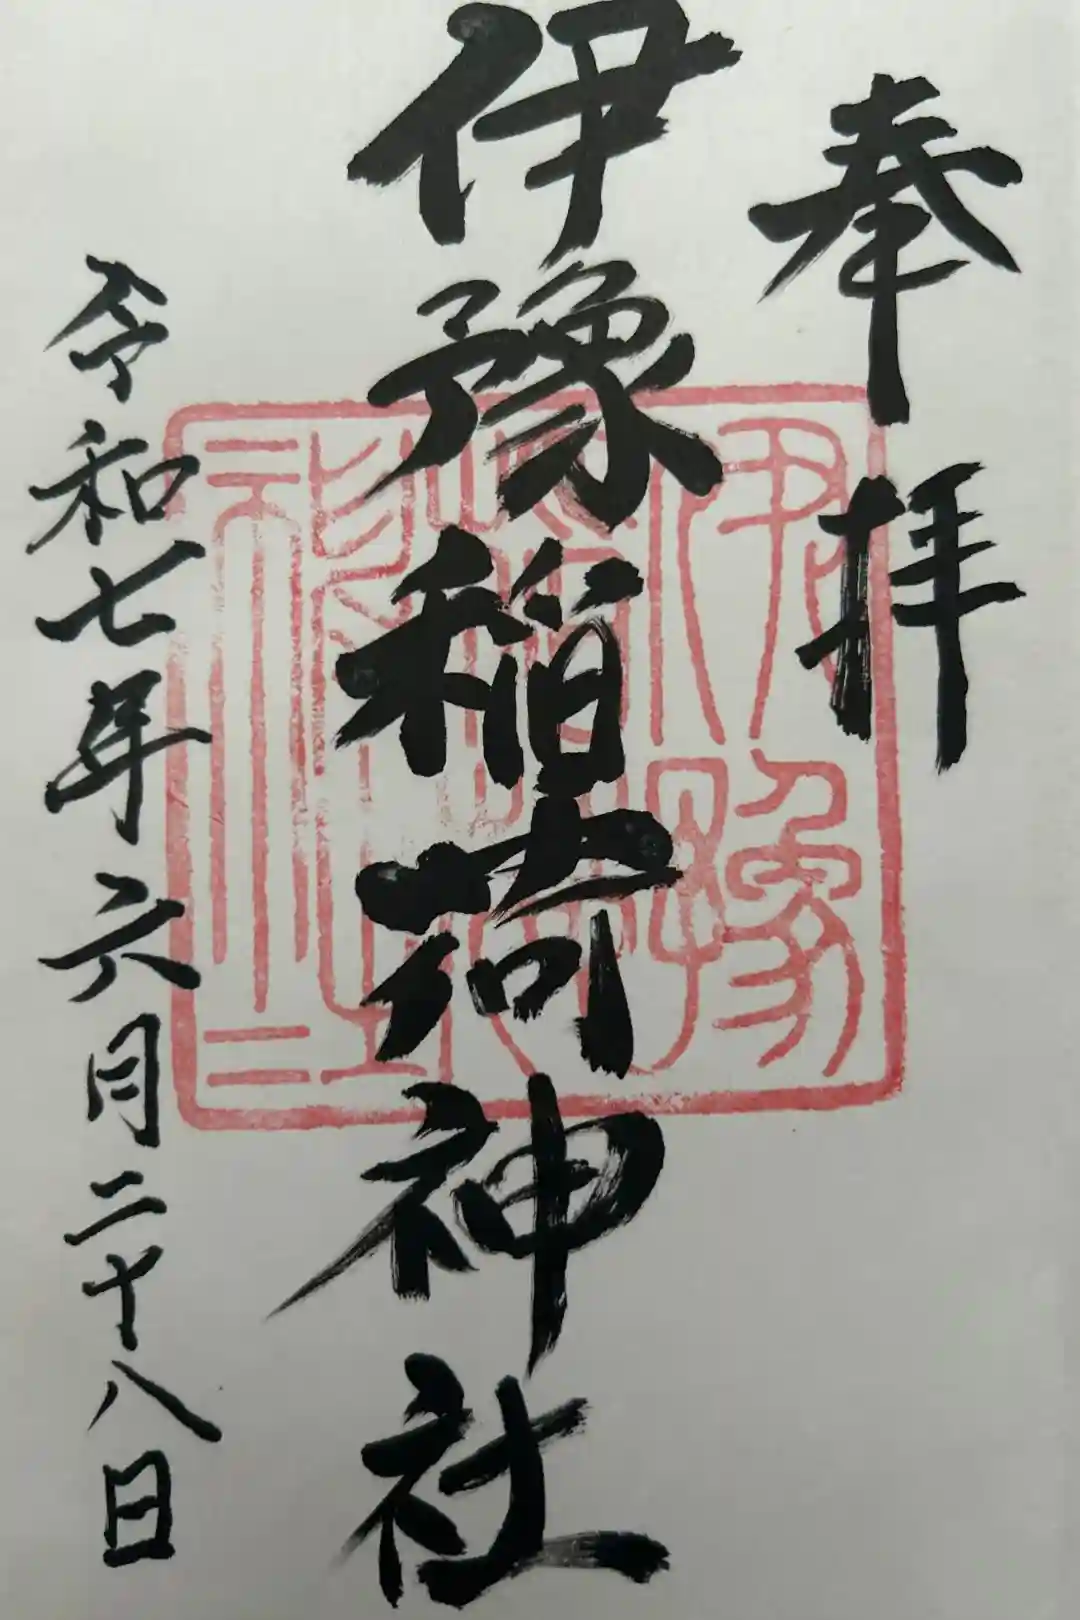 奉拝
伊豫稲荷神社
令和七年六月二十八日
伊豫
稲荷
神社